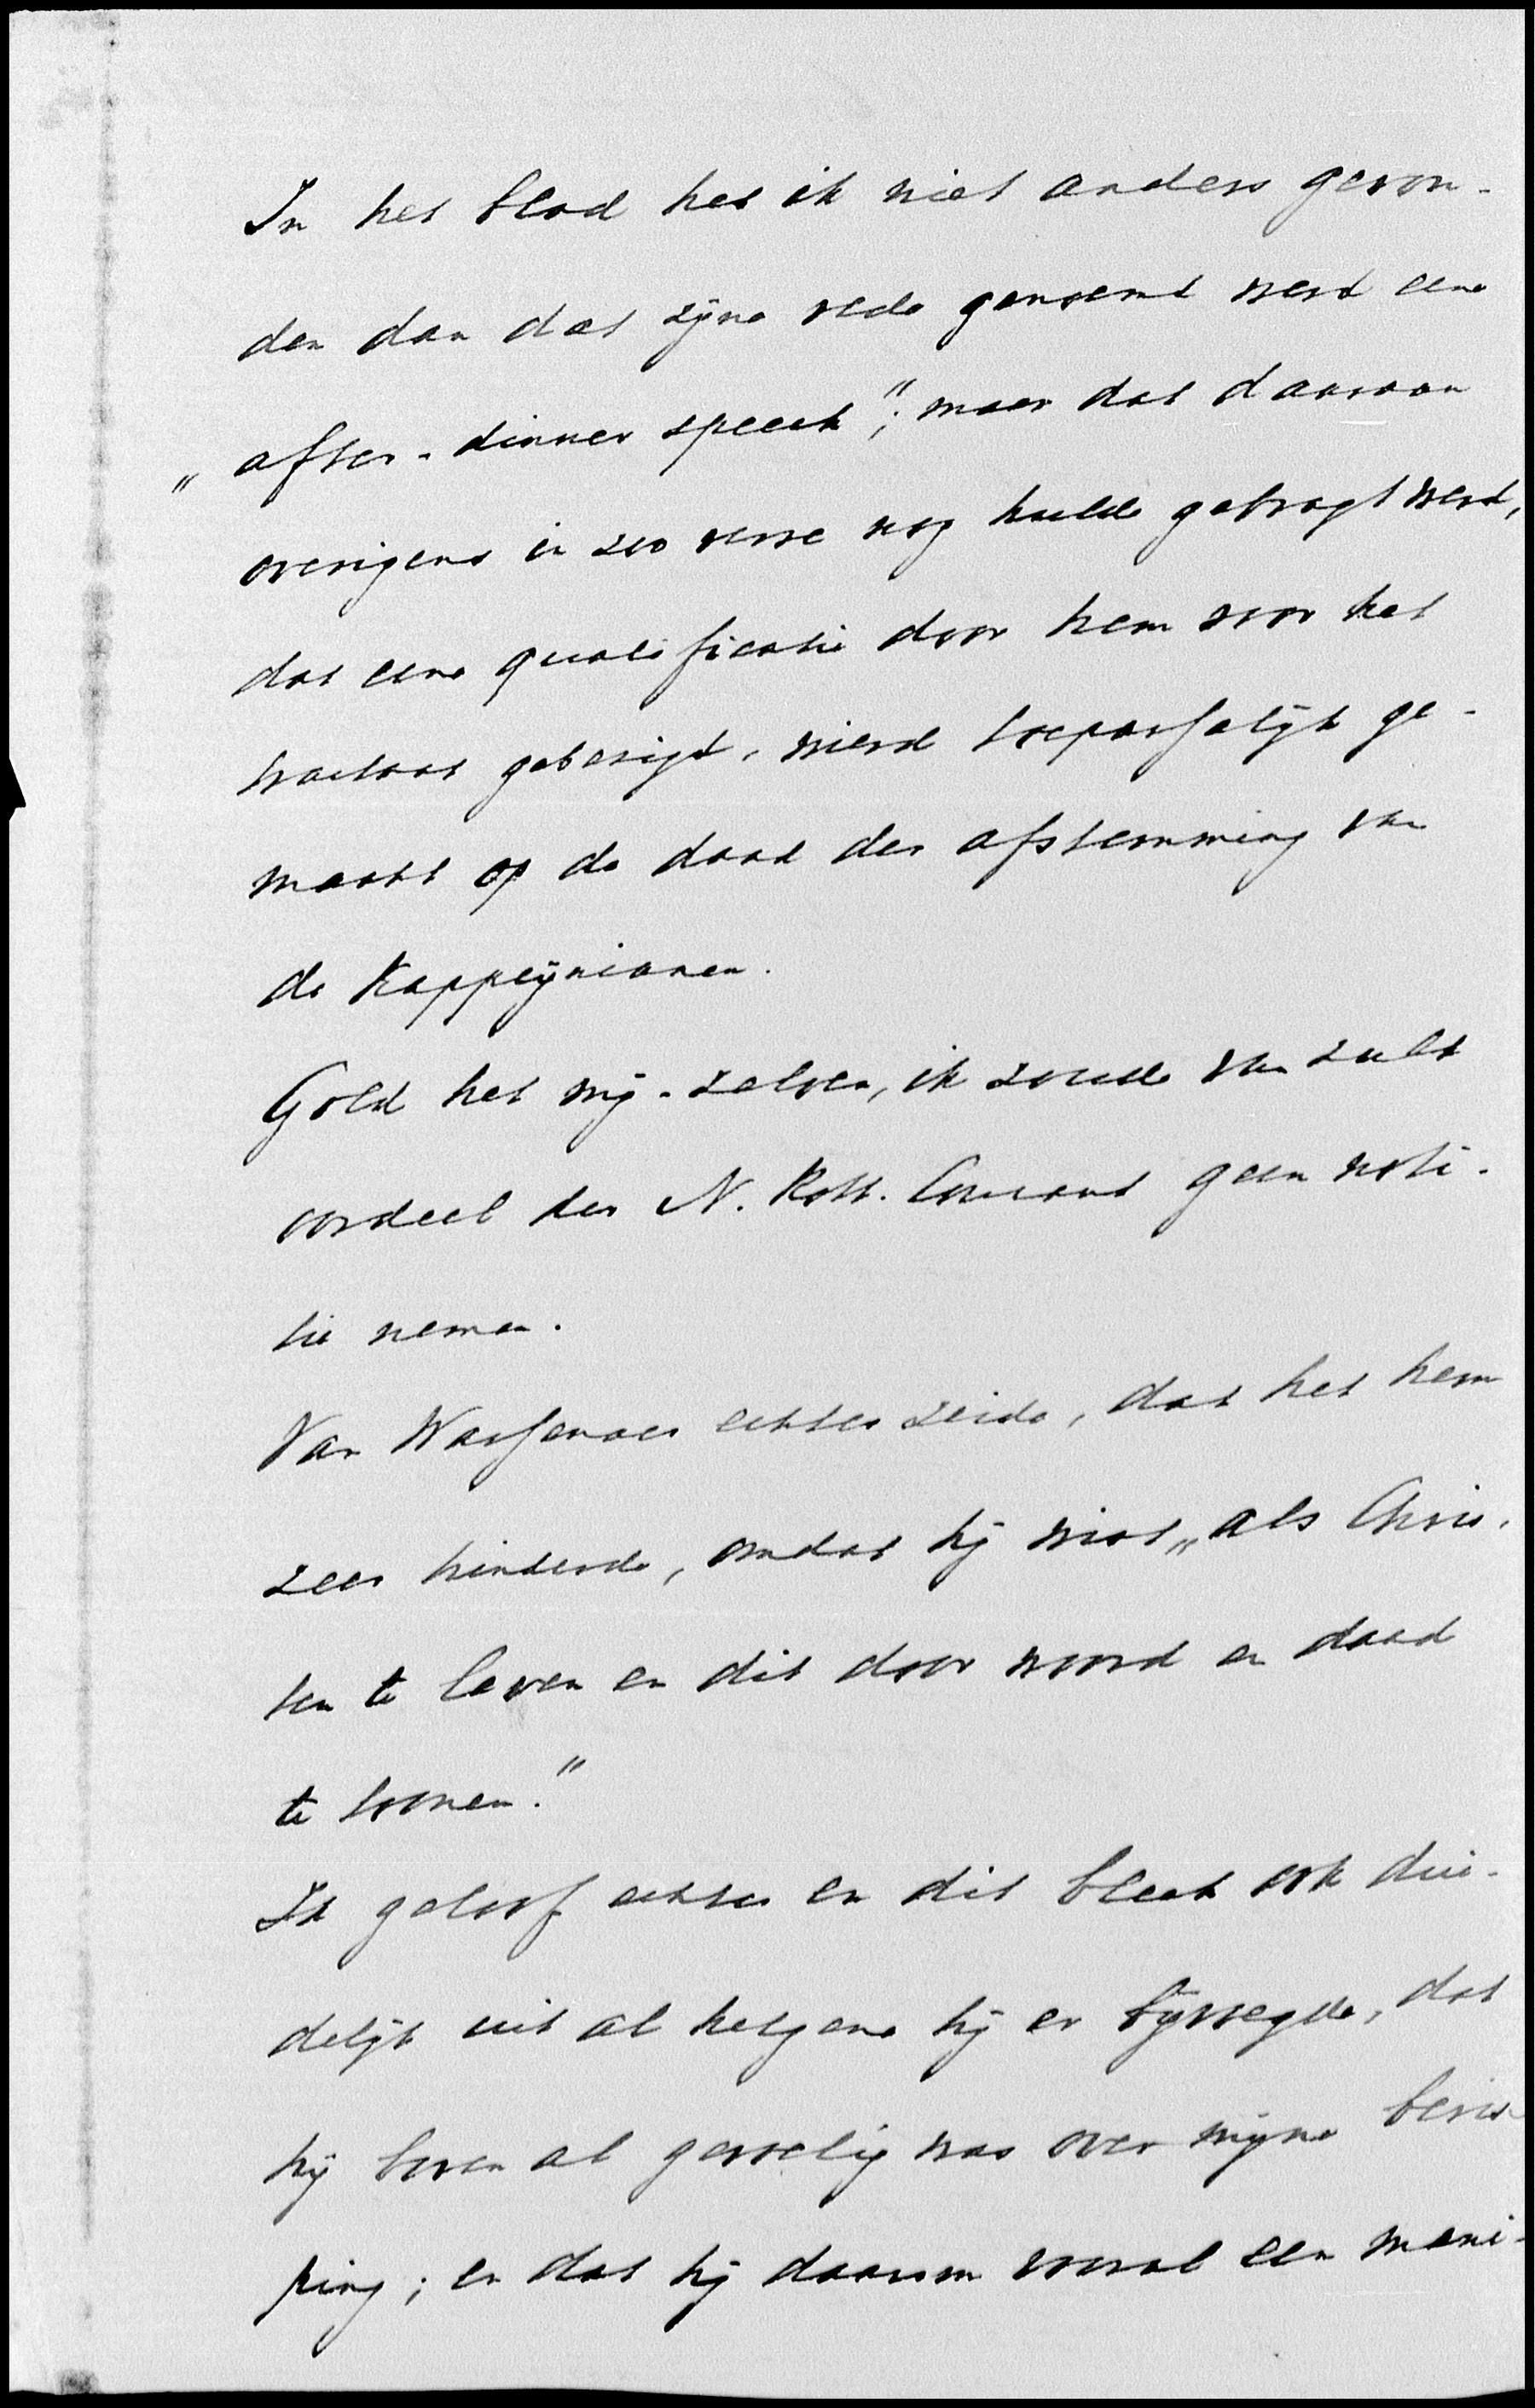 In het blad heb ik niet anders gevon-
den dan dat zijne rede genoemd werd eene
„after-dinner speech"; maar dat daaraan
overigens in zoo verre nog hulde gebragt werd,
dat eene qualificatie door hem voor het
tractaat gebezigd, wierd toepasselijk ge-
maakt op de daad der afstemming van
de Kappeijnianen.
Gold het mij-zelven, ik zoude van zulk
oordeel der N. Rott. Courant geen noti-
tie nemen.
Van Wassenaer echter zeide, dat het hem
zeer hinderde, omdat hij wist „als Chris-
ten te leven en dit door woord en daad
te toonen."
Ik geloof echter en dit bleek ook dui-
delijk uit al hetgene hij er bijvoegde, dat
hij boven al gevoelig was over mijne beris-
ping; en dat hij daarom vooral een mani-